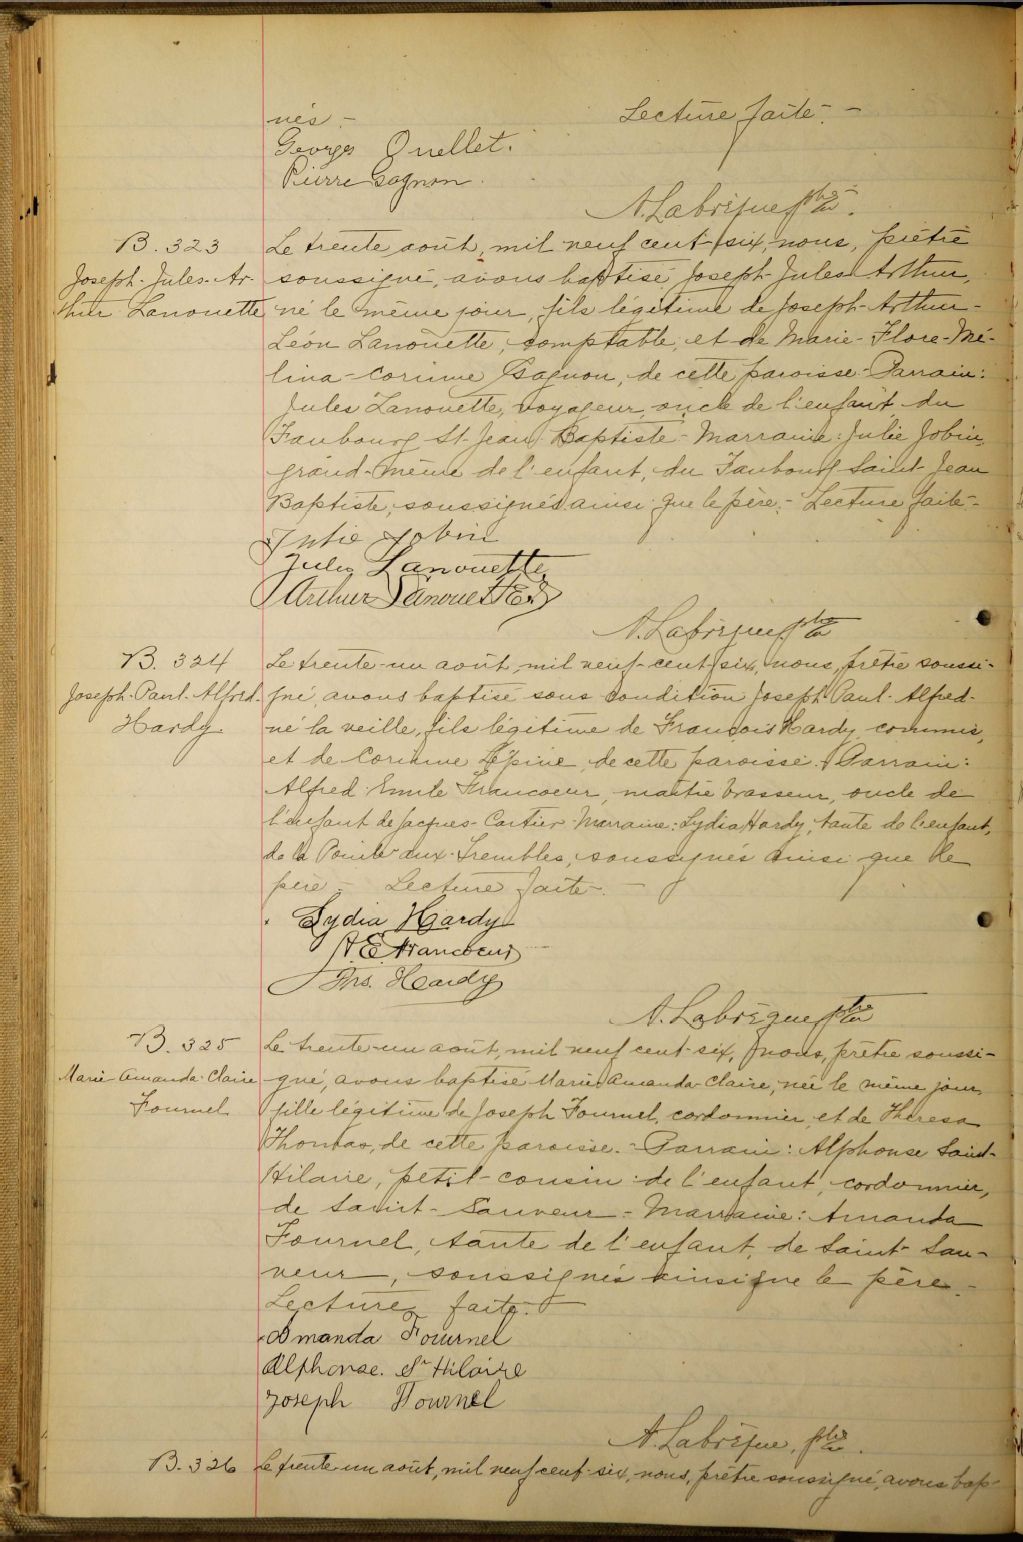 nés.- Lecture faite.-
Georges Ouellet.
Pierre Gagnon.
A. Labrèque, ptre.
B. 323
Joseph-Jules-Ar-
thur Lanouette
Le trente août, mil neuf cent-six, nous, prêtre
soussigné, avons baptisé, Joseph-Jules-Arthur,
né le même jour, fils légitime de Joseph-Arthur-
Léon Lanouette, comptable, et de Marie-Flore-Mé-
lina-Corinne Gagnon, de cette paroisse-Parrain:
Jules Lanouette, voyageur, oncle de l'enfant, du
Faubourg St-Jean Baptiste-Marraine: Julie Jobin,
grand-mème de l'enfant, du Faubourg Saint-Jean
Baptiste, soussignés ainsi que le père,- Lecture faite-
Julie Jobin
Jules Lanouette
Arthur Lanouette
A. Labrèque, ptre
B. 324
Joseph-Paul-Alfred-
Hardy
Le trente-un août, mil neuf-cent-six, nous, prêtre soussi-
gné, avons baptisé sous condition Joseph-Paul-Alfred-
né la veille, fils légitime de François Hardy, commis,
et de Corinne Lépine, de cette paroisse. Parrain:
Alfred-Emile Francoeur, maître brasseur, oncle de
l'enfant de Jacques-Cartier-Marraine: Lydia Hardy, tante de l'enfant,
de la Pointe-aux-Trembles, soussignés ainsi que le
père- Lecture faite.-
Lydia Hardy
A. E. Francoeur
Frs. Hardy
A. Labrèque ptre
B. 325
Marie-Amanda-Claire
Fournel
Le trente-un août, mil neuf cent-six, nous, prêtre soussi-
gné, avons baptisé Marie-Amanda-Claire, née le même jour,
fille légitime de Joseph Fournel, cordonnier, et de Theresa
Thomas, de cette paroisse.-Parrain: Alphonse Saint-
Hilaire, petit-cousin de l'enfant, cordonnier,
de Saint-Sauveur-Marraine: Amanda
Fournel, tante de l'enfant, de Saint-Sau-
veur, soussignés ainsi que le père.-
Lecture faite.-
Amanda Fournel
Alphonse. St Hilaire
Joseph Fournel
A. Labrèque, ptre.
B. 326
Le trente-un août, mil neuf cent-six, nous, prêtre soussigné, avons bap-